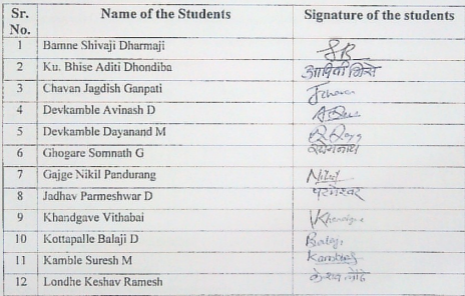 Sr. No. Name of the Students Signature of the students
1 Bamne Shivaji Dharmaji SB
2 Ku. Bhise Aditi Dhondiba आदिती भिसे
3 Chavan Jagdish Ganpati
4 Devkamble Avinash D
5 Devkamble Dayanand M
6 Ghogare Somnath G
7 Gajge Nikil Pandurang
8 Jadhav Parmeshwar D परमेश्वर
9 Khandgave Vithabai
10 Kottapalle Balaji D Balaji
11 Kamble Suresh M
12 Londhe Keshav Ramesh केशव लोंढे